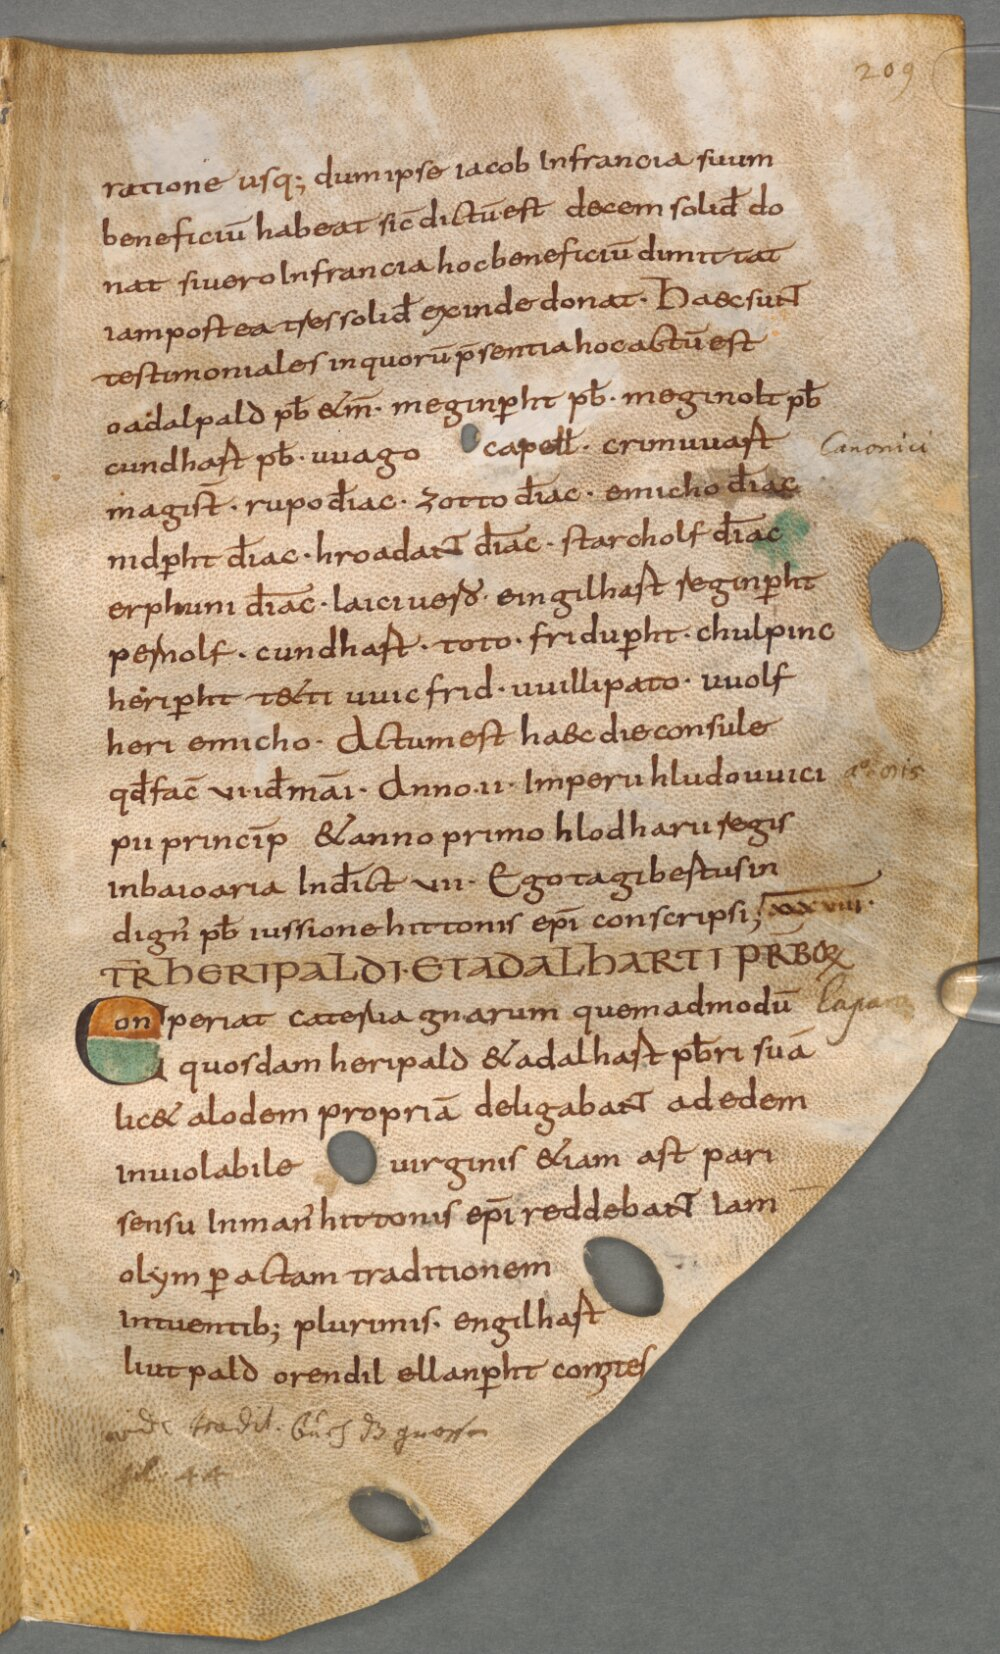 209
ratione usq; dum ipse iacob In francia suum
beneficiū habeat sic̄ dictū est decem solid̄ do
nat si uero In francia hoc beneficiū dimittat
iam post ea tres solid̄ exinde donat · Haec sunt
testimoniales in quorū p̄sentia hoc actū est
oadalpald pb̄ & m̄ · meginp̱ht pb̄ · meginolt pb̄
cundhart pb̄ · uuago capell̄ · crimuuart
Canonici
magist̄ · rupo d̄iac · zotto d̄iac · emicho d̄iac
nidp̱ht d̄iac · hroadant d̄iac · starcholf d̄iac
erphuni d̄iac · laici uerō · eingilhart reginp̱ht
pernolf · cundhart · toto · fridup̱ht · chulpinc
herip̱ht t&ti uuicfrid · uuillipato · uuolf
heri emicho · Actum est haec die consule
qd̄ fac̄ vi id̄ mai · Anno · ii · Imperii hludouuici
pii princip̄ & anno primo hlodharii regis
in baioaria Ind̄ict vii · Ego tagibertus in
dign̄ pb̄ iussione hittonis ep̄i conscripsi; xxviii ·
TR HERIPALDI · ET ADALHARTI PRBOR
Conperiat caterua gnarum quemadmodū
quosdam heripald & adalhart pb̄ri suā
lic& alodem propriā deligabant ad edem
inuiolabile uirginis &iam ast pari
sensu In man̄ hittonis ep̄i reddebant Iam
olym p̱actam traditionem
intuentib; plurimis · engilhart
liutpald orendil ellanp̱ht comites
vide tradit. Buch B
fol. 44